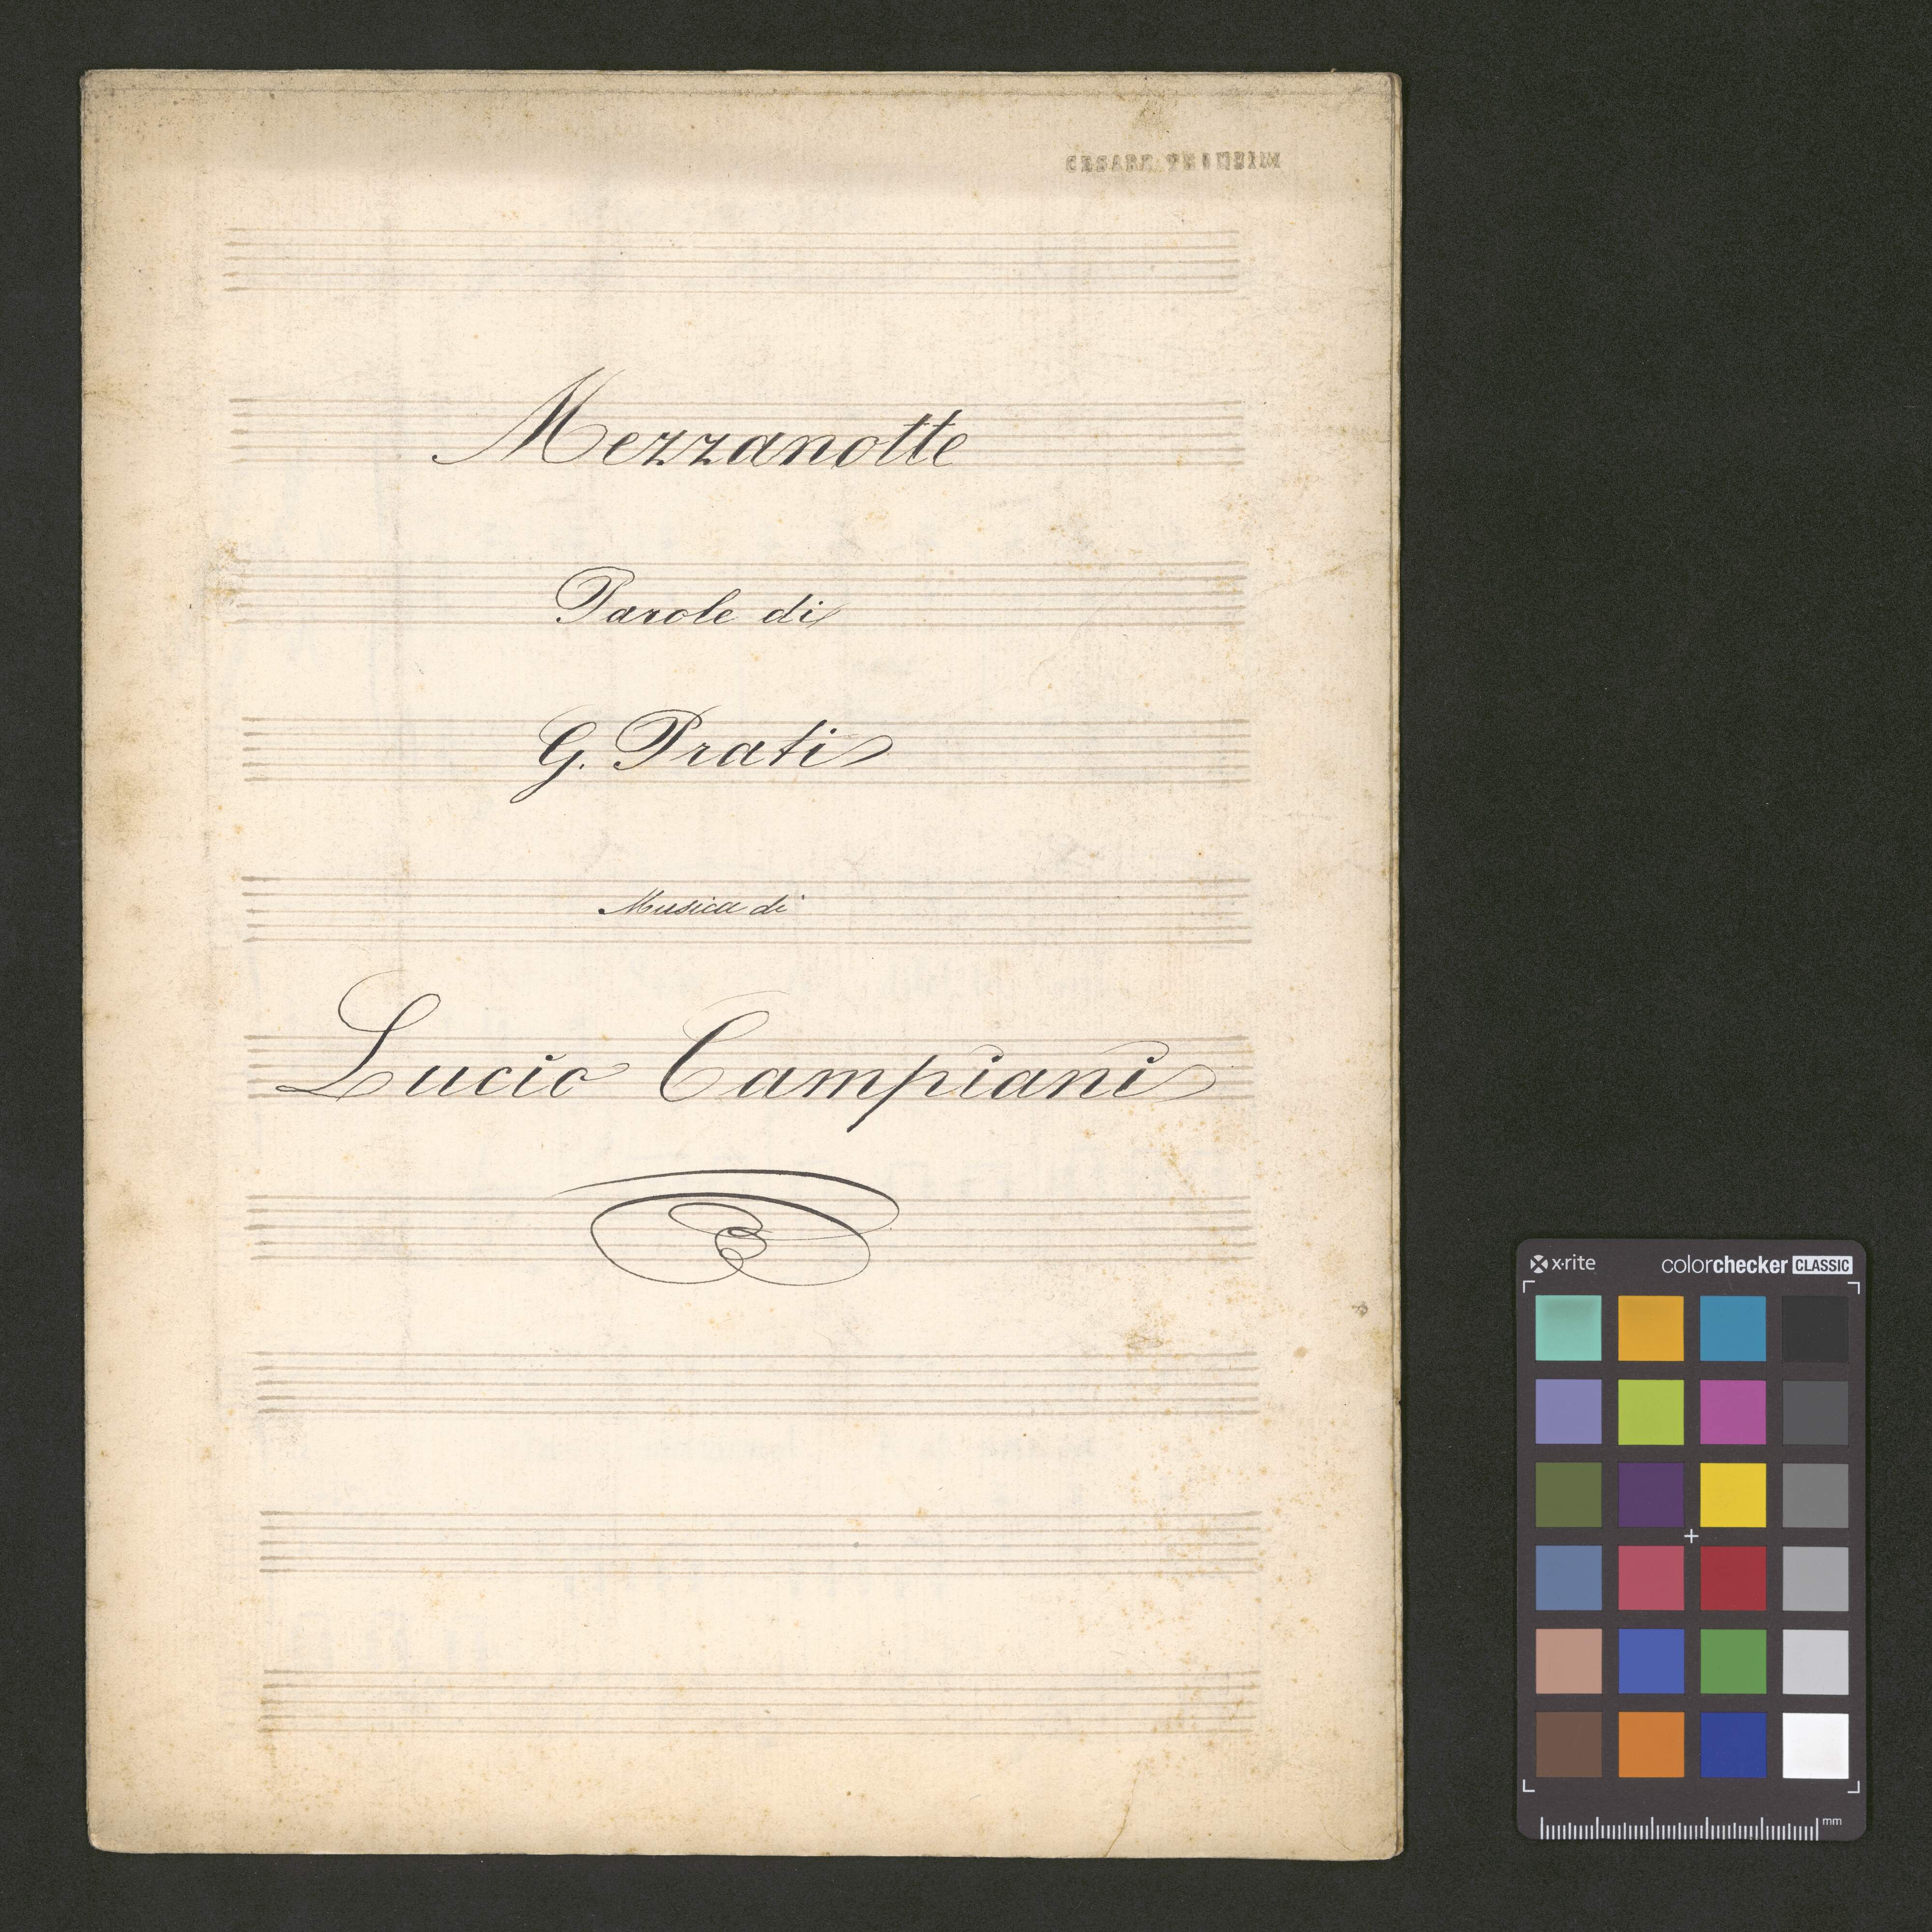 CESARE
Mezzanotte
Parole di
G. Prati
Musica di
Lucio Campiani
x·rite colorchecker CLASSIC
mm